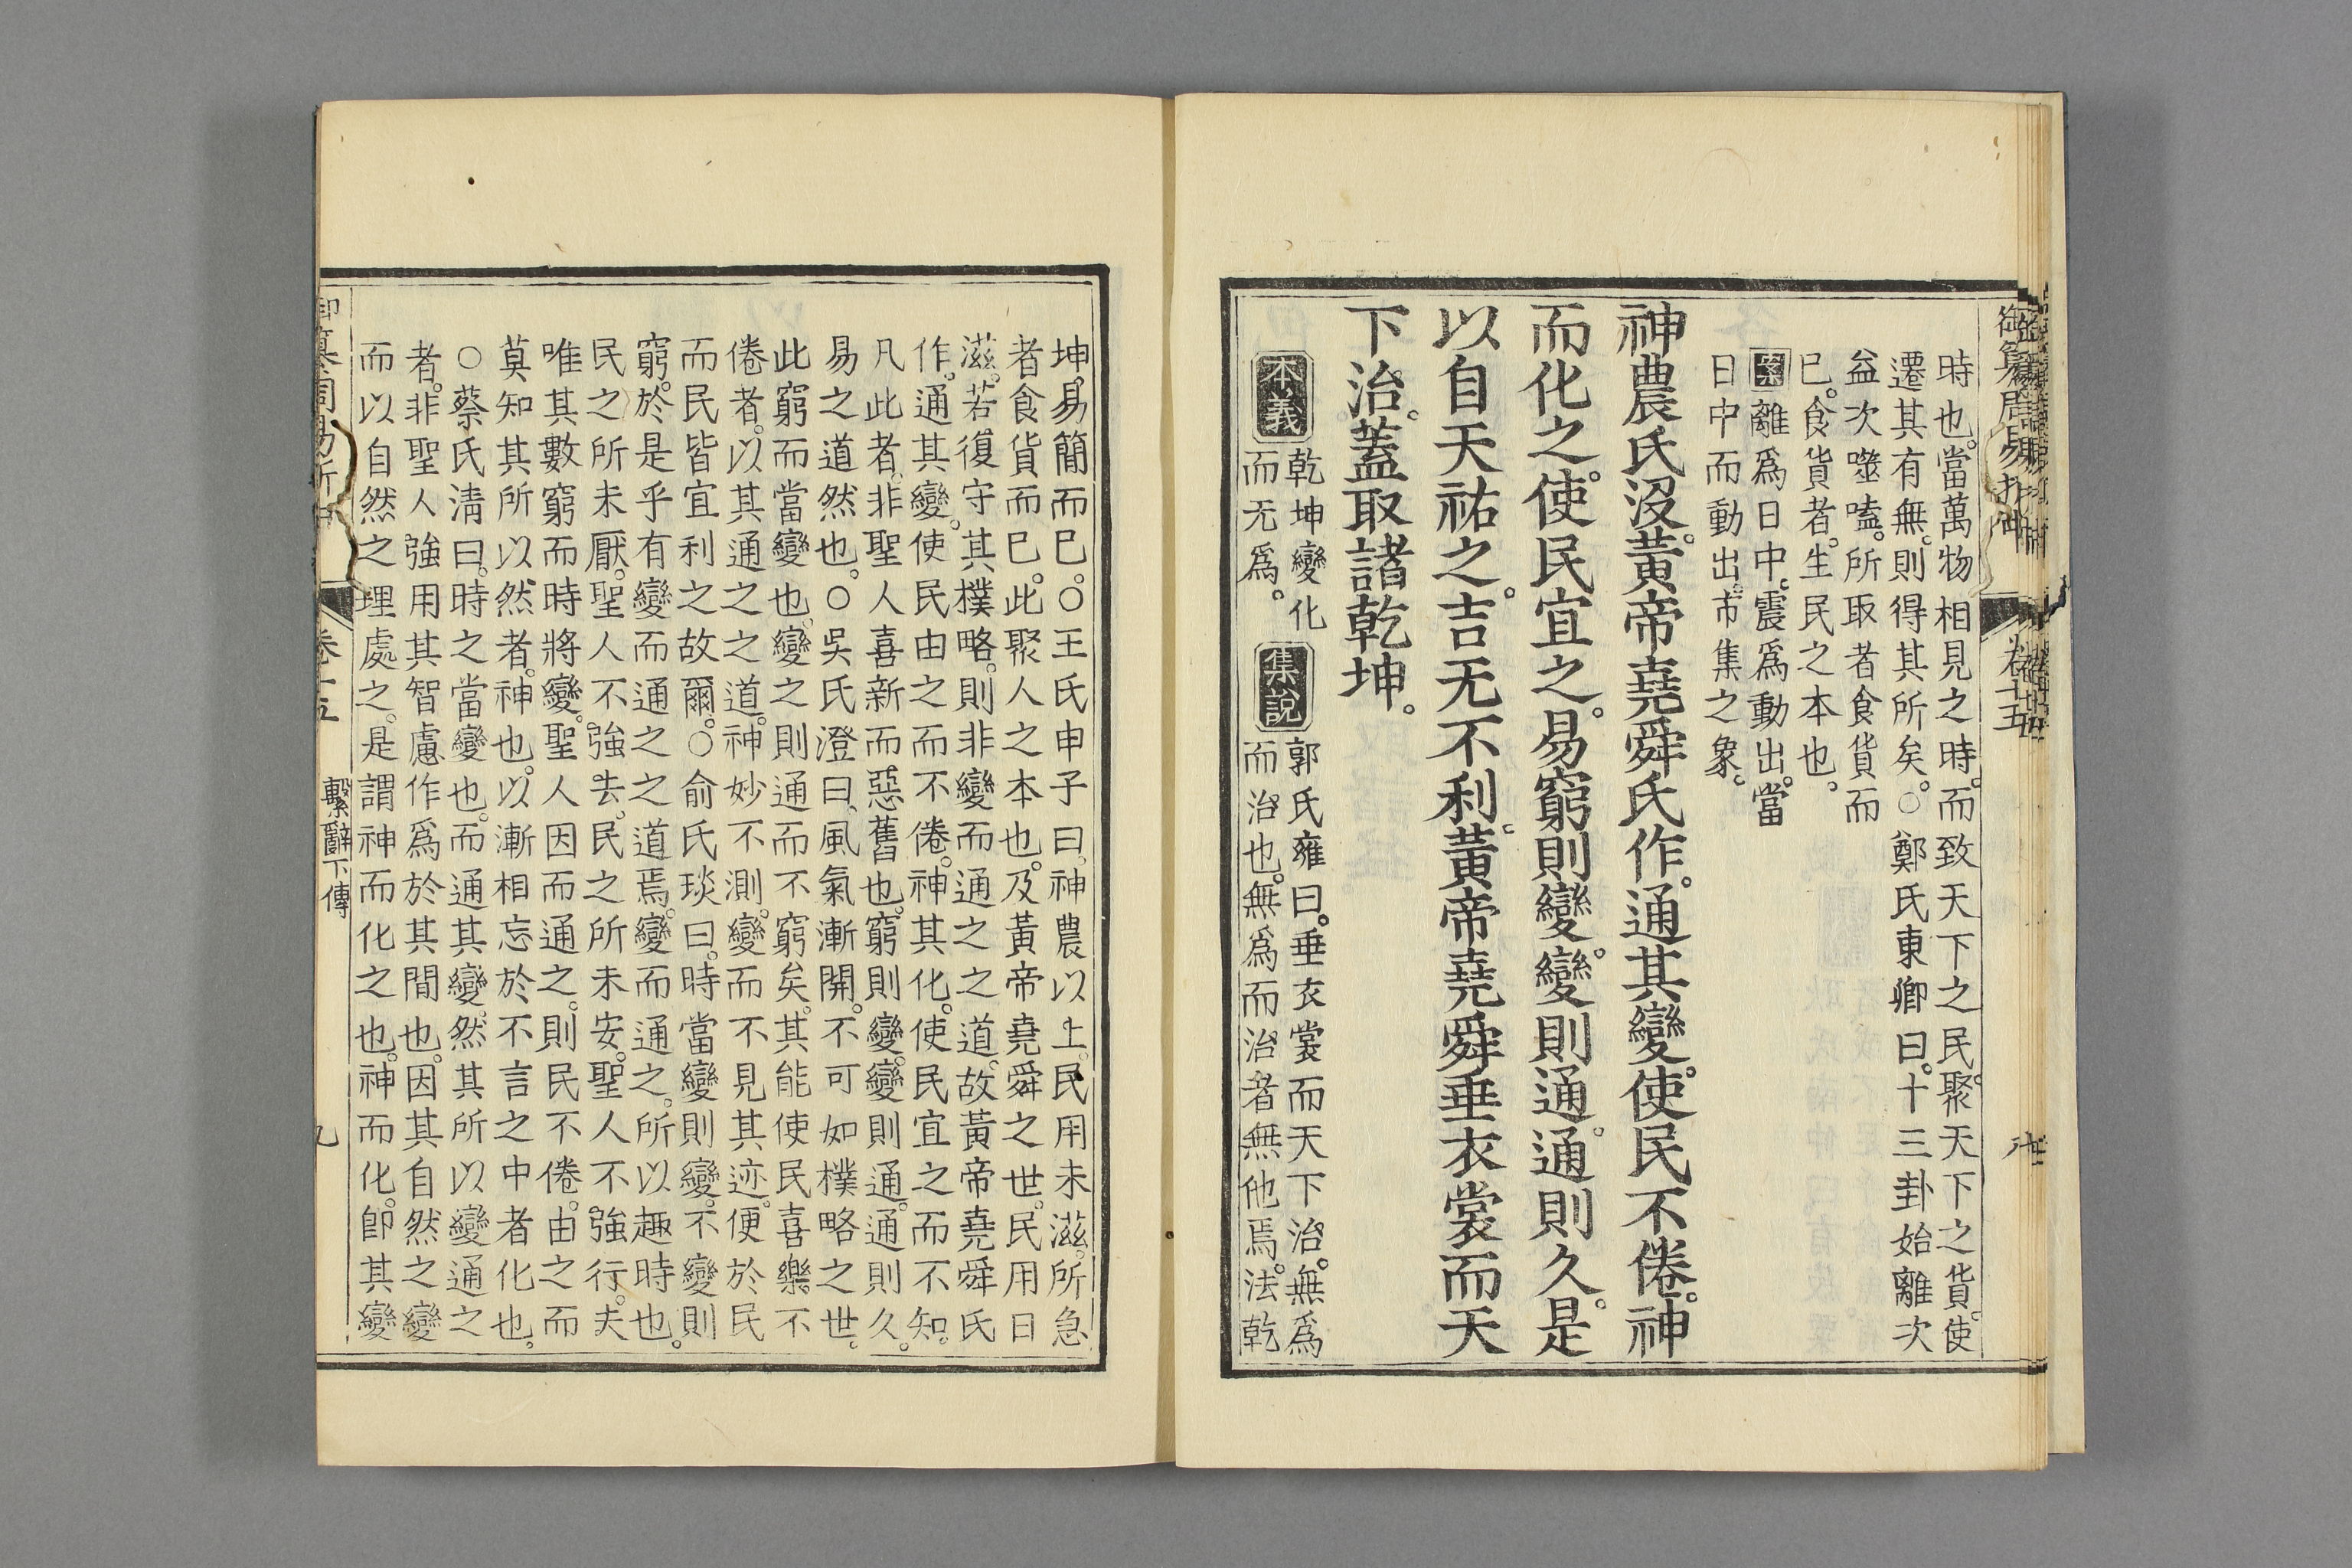 時也。當萬物相見之時。而致天下之民。聚天下之貨。使
遷其有無。則得其所矣。○鄭氏東卿曰。十三卦始離次
益次噬嗑。所取者食貨而
已。食貨者。生民之本也。
案離爲日中。震爲動出。當
日中而動出。市集之象。
神農氏沒。黃帝堯舜氏作。通其變。使民不倦。神
而化之。使民宜之。易窮則變。變則通。通則久。是
以自天祐之。吉无不利。黃帝堯舜垂衣裳而天
下治。蓋取諸乾坤。
本義 乾坤變化
而无爲。
集說 郭氏雍曰。垂衣裳而天下治。無爲
而治也。無爲而治者。無他焉。法乾
坤易簡而已。○王氏申子曰。神農以上。民用未滋。所急
者食貨而已。此聚人之本也。及黃帝堯舜之世。民用日
滋。若復守其樸略。則非變而通之之道。故黃帝堯舜氏
作。通其變。使民由之而不倦。神其化。使民宜之而不知。
凡此者。非聖人喜新而惡舊也。窮則變。變則通。通則久。
易之道然也。○吳氏澄曰。風氣漸開。不可如樸略之世。
此窮而當變也。變之則通而不窮矣。其能使民喜樂不
倦者。以其通之之道。神妙不測。變而不見其迹。便於民
而民皆宜利之故爾。○俞氏琰曰。時當變則變。不變則
窮。於是乎有變而通之之道焉。變而通之。所以趣時也。
民之所未厭。聖人不強去。民之所未安。聖人不強行。夫
唯其數窮而時將變。聖人因而通之。則民不倦。由之而
莫知其所以然者。神也。以漸相忘於不言之中者化也。
○蔡氏清曰。時之當變也。而通其變。然其所以變通之
者。非聖人強用其智慮作爲於其間也。因其自然之變
而以自然之理處之。是謂神而化之也。神而化。卽其變
卷十五
繫辭下傳
九